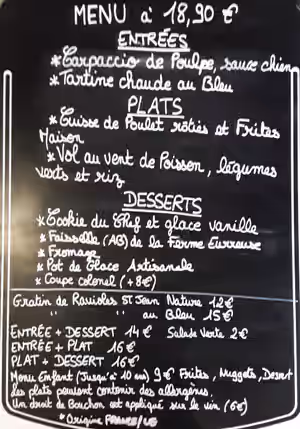 MENU à 18,90 €
ENTRÉES
* Carpaccio de Poulpe, sauce chien
* Tartine chaude au Bleu
PLATS
* Cuisse de Poulet rôties et Frites
Maison
* Vol au vent de Poisson, légumes
verts et riz
DESSERTS
* Cookie du Chef et glace vanille
* Faisselle (AB) de la Ferme
* Fromage
* Pot de Glace Artisanale
* Coupe colonel (+8€)
Gratin de Ravioles St Jean Nature 12€
" " au Bleu 15€
ENTRÉE + DESSERT 14€ Salade Verte 2€
ENTRÉE + PLAT 16€
PLAT + DESSERT 16€
Menu Enfant (Jusqu'à 10 ans) 9€ Frites, Nuggets, Dessert
Les plats peuvent contenir des allergènes.
Un droit de Bouchon est appliqué sur le vin (6€)
* Origine FRANCE/UE